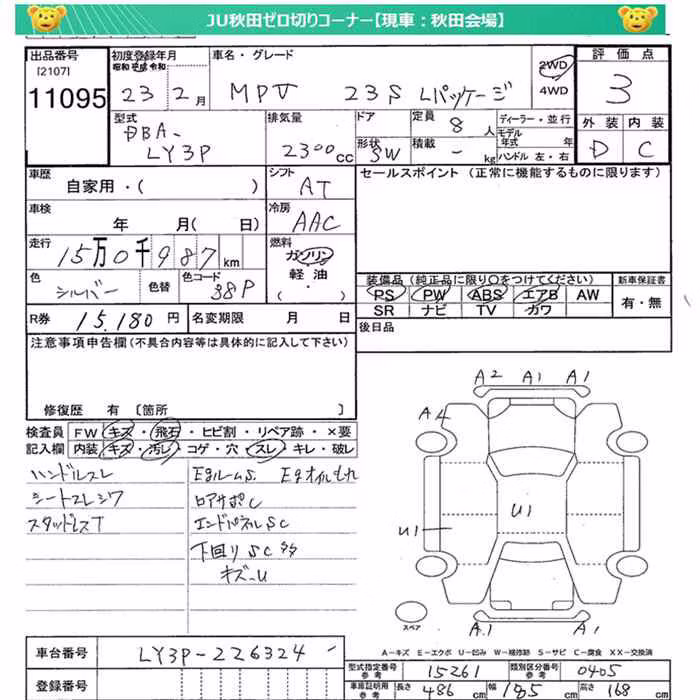 JU秋田ゼロ切りコーナー【現車：秋田会場】
出品番号 [2107] 11095
初度登録年月 昭和 平成 令和 23年 2月
車名・グレード MPV 23S Lパッケージ
2WD
4WD
評価点 3
外装 内装
D C
型式 DBA- LY3P
排気量 2300cc
ドア
形状 SW
定員 8人
積載 - kg
ディーラー・並行
モデル年式 年
ハンドル 左・右
車歴 自家用・( )
シフト AT
セールスポイント (正常に機能するものに限ります)
車検 年 月( 日)
冷房 AAC
走行 15万0千987km
燃料 ガソリン・軽油 ( ・ )
色 シルバー 色替
色コード 38P
装備品 (純正品に限り○をつけてください)
PS PW ABS エアB AW
SR ナビ TV カワ
新車保証書 有・無
R券 15,180円
名変期限 月 日
後日品
注意事項申告欄(不具合内容等は具体的に記入して下さい)
修復歴 有 〔箇所 〕
検査員記入欄
FW キズ・飛石・ヒビ割・リペア跡・×要
内装 キズ・汚レ・コゲ・穴・スレ・キレ・破レ
ハンドルスレ
シートスレシワ
スタッドレスT
EgルームS Egオイルモれ
ロアサポC
エンドパネルSC
下回りSC多
キズ-U
A2 A1 A1
A2
U1
U1
A1 A1
スペア
A－キズ E－エクボ U－凹み W－補修跡 S－サビ C－腐食 XX－交換済
車台番号 LY3P-226324
登録番号
型式指定番号 参考 15261
類別区分番号 参考 0405
車庫証明用 参考 長さ 486cm 幅 185cm 高さ 168cm